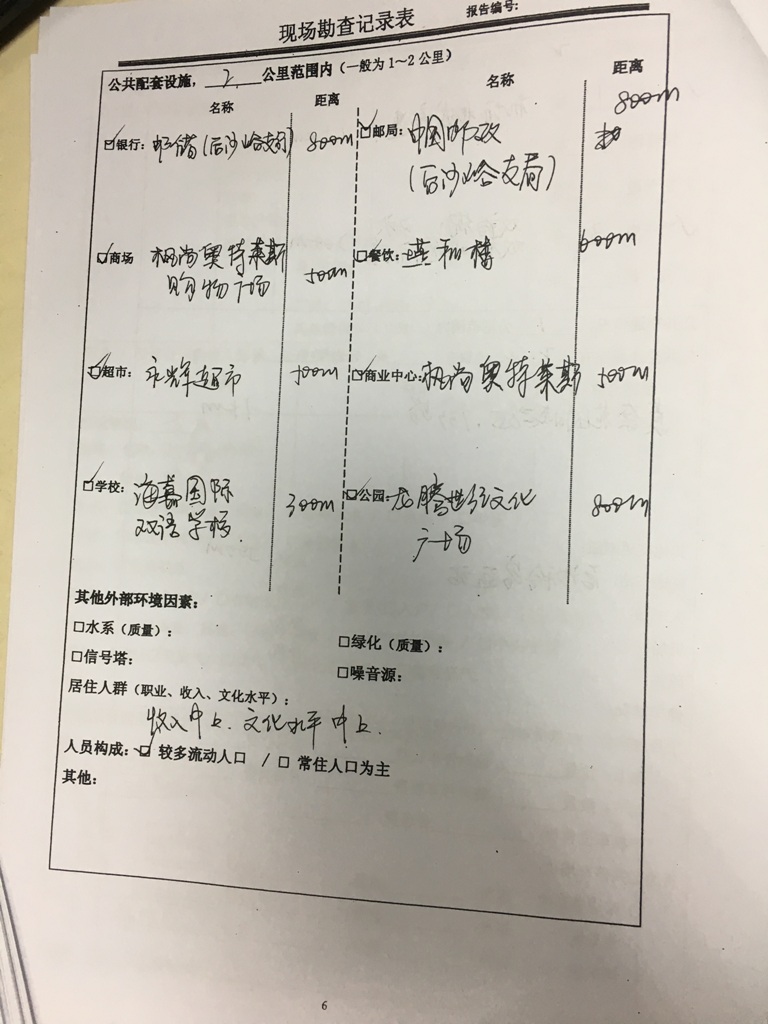 现场勘查记录表
报告编号：
公共配套设施，2公里范围内（一般为1～2公里）
名称 距离 名称 距离
☑银行：邮储（后沙峪支行） 800m ☑邮局：中国邮政 800m
（后沙峪支局）
☑商场 枫尚奥特莱斯 500m ☑餐饮： 600m
购物广场
☑超市：永辉超市 500m ☑商业中心：枫尚奥特莱斯 500m
☑学校：海嘉国际 300m ☑公园：龙腾世纪文化 800m
双语学校. 广场
其他外部环境因素：
□水系（质量）： □绿化（质量）：
□信号塔： □噪音源：
居住人群（职业、收入、文化水平）：
收入中上．文化水平中上．
人员构成：☑ 较多流动人口 / □ 常住人口为主
其他：
6